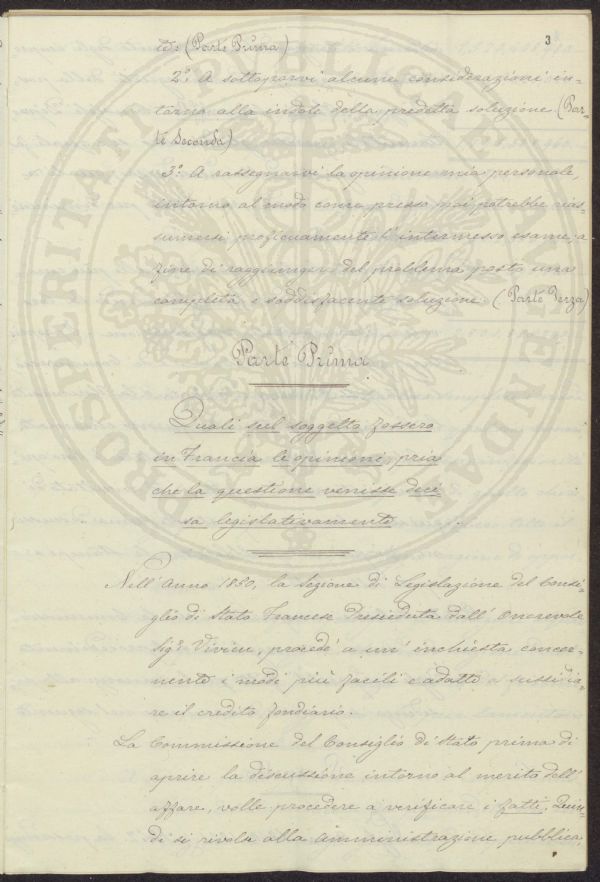 3
te: (Parte Prima)
2.° A sottoporvi alcune considerazioni in-
torno alla indole della predetta soluzione (Par-
te Seconda)
3.° A rassegnarvi la opinione mia personale,
intorno al modo come presso noi potrebbe rias-
sumersi proficuamente l'intermesso esame, a
fine di raggiungere del problema posto una
completa e soddisfacente soluzione (Parte Terza)
Parte Prima
Quali sul soggetto fossero
in Francia le opinioni, pria
che la questione venisse deci
sa legislativamente.
Nell'Anno 1850, la Sezione di Legislazione del Consi-
glio di Stato Francese Presieduta dall'Onorevole
Sig.r Vivien, procedé a un'inchiesta concer-
nente i modi più facili e adatti a sussidia-
re il credito fondiario.
La Commissione del Consiglio di Stato prima di
aprire la discussione intorno al merito dell'
affare, volle procedere a verificare i fatti. Quin-
di si rivolse alla Amministrazione pubblica,
PROSPERITATI PUBLICAE AUGENDAE